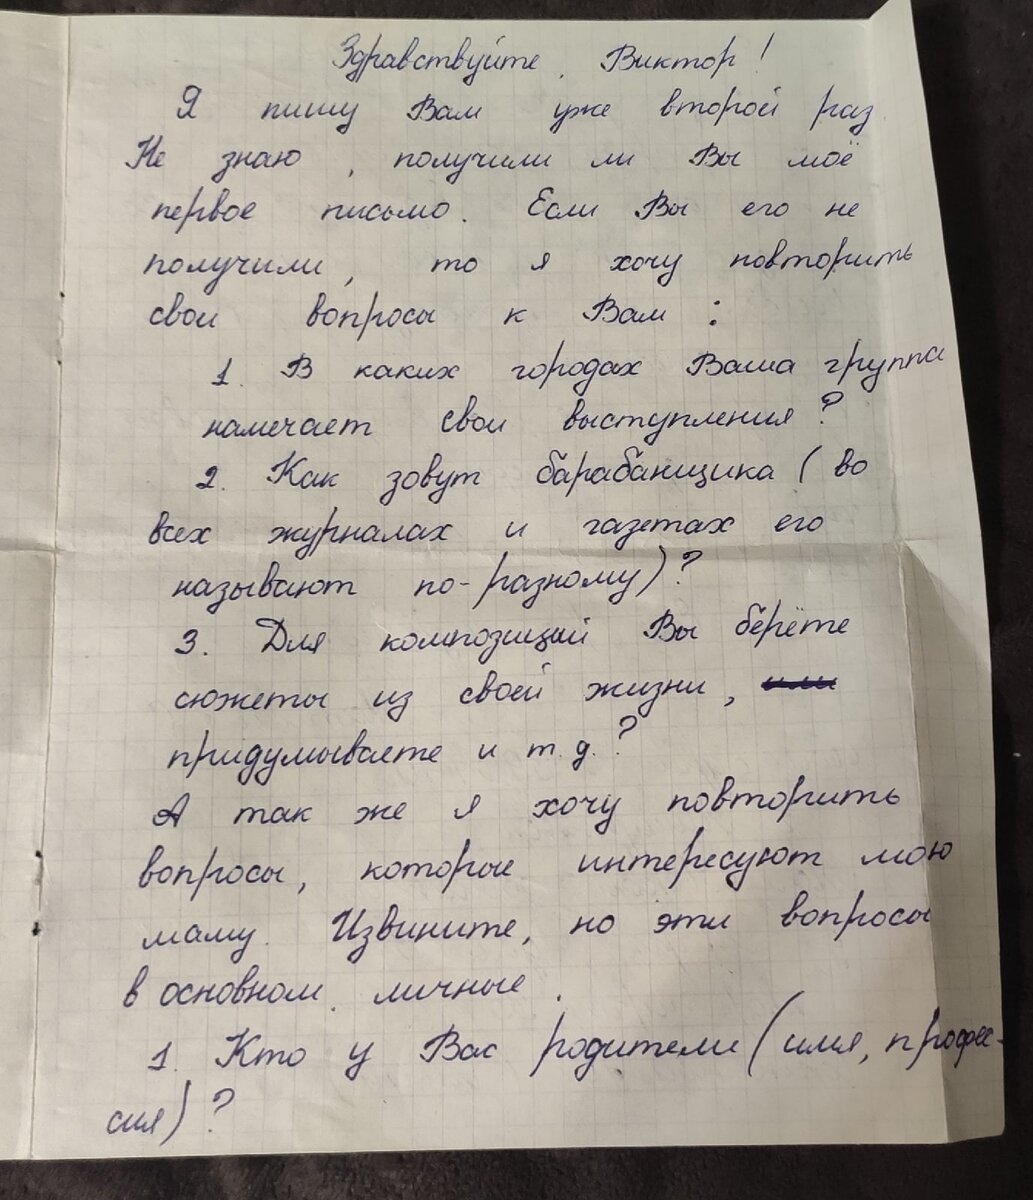 Здравствуйте, Виктор!
Я пишу Вам уже второй раз.
Не знаю, получили ли Вы моё
первое письмо. Если Вы его не
получили, то я хочу повторить
свои вопросы к Вам:
1. В каких городах Ваша группа
намечает свои выступления?
2. Как зовут барабанщика (во
всех журналах и газетах его
называют по-разному)?
3. Для композиций Вы берёте
сюжеты из своей жизни, или
придумываете и т.д.?
А так же я хочу повторить
вопросы, которые интересуют мою
маму. Извините, но эти вопросы
в основном личные.
1. Кто у Вас родители (имя, профес-
сия)?